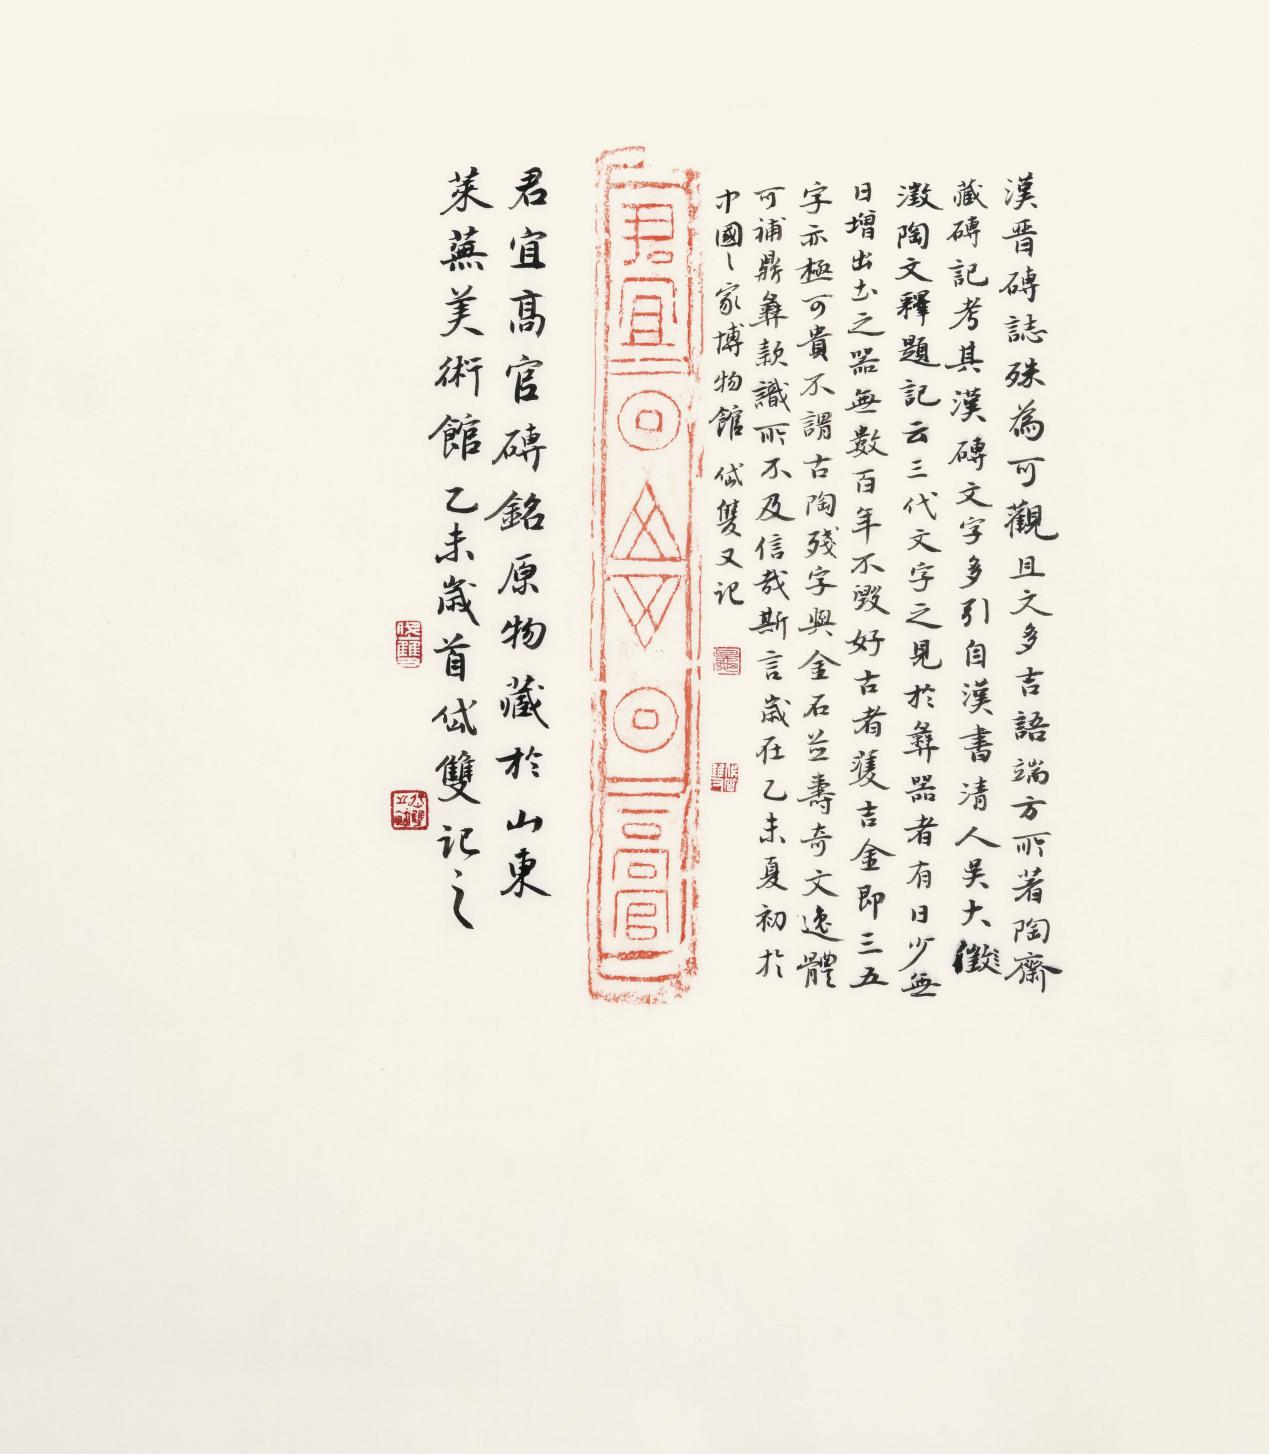 漢晉磚誌殊為可觀且文多吉語端方所著陶齋
藏磚記考其漢磚文字多引自漢書清人吳大徵
澂陶文釋題記云三代文字之見於彝器者有日少無
日增出土之器無數百年不毀好古者蒦吉金即三五
字亦極可貴不謂古陶殘字與金石並壽奇文逸體
可補鼎彝款識所不及信哉斯言歲在乙未夏初於
中國〻家博物館 岱雙又記
君宜
高官
君宜高官磚銘原物藏於山東
萊蕪美術館乙未歲首岱雙記之